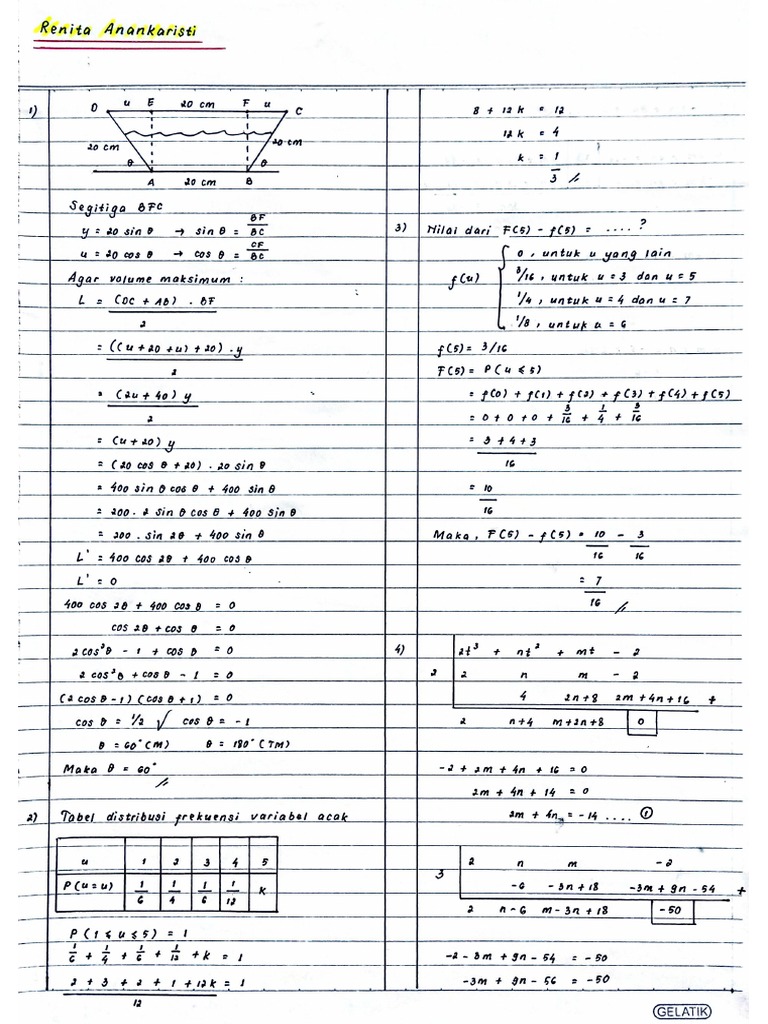 Renita Anankaristi
1)
D u E 20 cm F u C
20 cm 20 cm
θ θ
A 20 cm B
Segitiga BFC
y = 20 sin θ → sin θ = BF/BC
u = 20 cos θ → cos θ = CF/BC
Agar volume maksimum :
L = (DC + AB) . BF / 2
= ((u + 20 + u) + 20) . y / 2
= (2u + 40) y / 2
= (u + 20) y
= (20 cos θ + 20) . 20 sin θ
= 400 sin θ cos θ + 400 sin θ
= 200 . 2 sin θ cos θ + 400 sin θ
= 200 . sin 2θ + 400 sin θ
L' = 400 cos 2θ + 400 cos θ
L' = 0
400 cos 2θ + 400 cos θ = 0
cos 2θ + cos θ = 0
2 cos²θ - 1 + cos θ = 0
2 cos²θ + cos θ - 1 = 0
(2 cos θ - 1) (cos θ + 1) = 0
cos θ = 1/2 √ cos θ = -1
θ = 60° (M) θ = 180° (TM)
Maka θ = 60°
2) Tabel distribusi frekuensi variabel acak
u 1 2 3 4 5
P(u = u) 1/6 1/4 1/6 1/12 K
P(1 ≤ u ≤ 5) = 1
1/6 + 1/4 + 1/6 + 1/12 + k = 1
2 + 3 + 2 + 1 + 12k / 12 = 1
8 + 12k = 12
12k = 4
k = 1/3
3) Nilai dari F(5) - f(5) = .... ?
f(u) { 0, untuk u yang lain
3/16, untuk u = 3 dan u = 5
1/4, untuk u = 4 dan u = 7
1/8, untuk u = 6
f(5) = 3/16
F(5) = P(u ≤ 5)
= f(0) + f(1) + f(2) + f(3) + f(4) + f(5)
= 0 + 0 + 0 + 3/16 + 1/4 + 3/16
= 3 + 4 + 3 / 16
= 10/16
Maka, F(5) - f(5) = 10/16 - 3/16
= 7/16
4) 2t³ + nt² + mt - 2
2 2 n m -2
4 2n+8 2m+4n+16 +
2 n+4 m+2n+8 0
-2 + 2m + 4n + 16 = 0
2m + 4n + 14 = 0
2m + 4n = -14 .... ①
2 n m -2
3 -6 -3n+18 -3m+9n-54 +
2 n-6 m-3n+18 -50
-2 - 3m + 9n - 54 = -50
-3m + 9n - 56 = -50
GELATIK